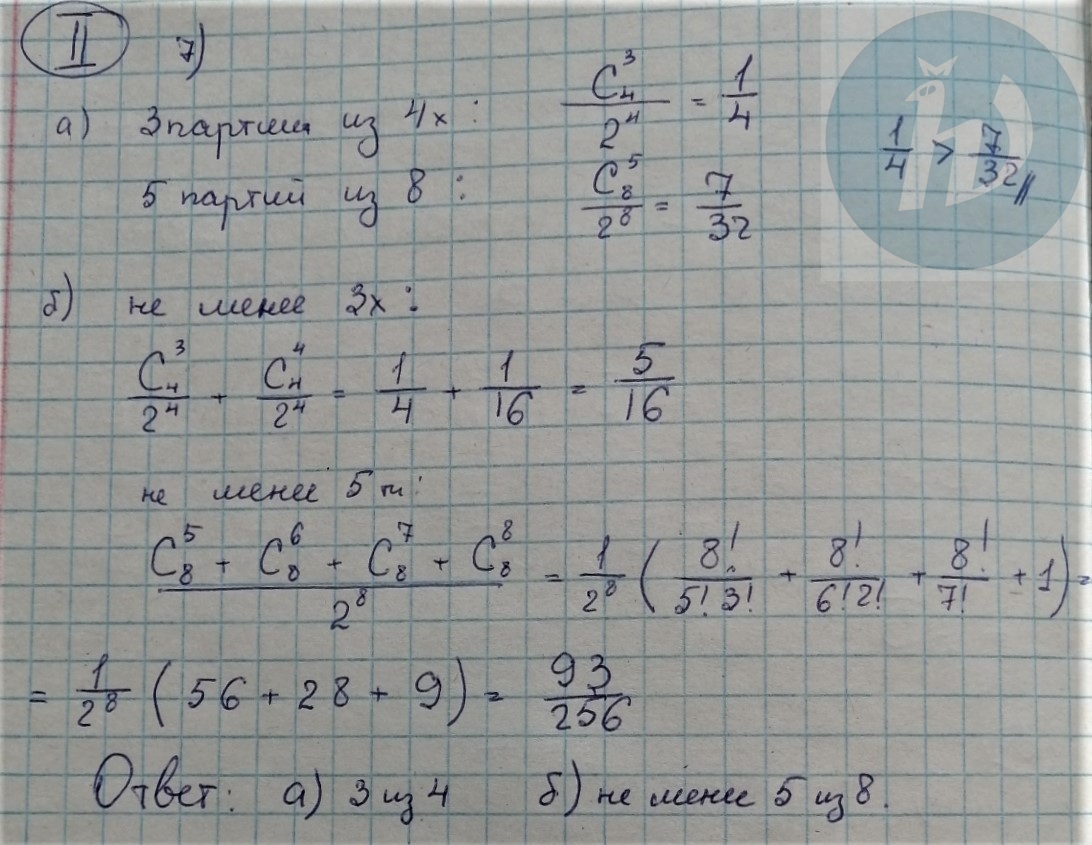 II 7)
а) 3 партии из 4х: C₄³/2⁴ = 1/4
1/4 > 7/32
5 партий из 8: C₈⁵/2⁸ = 7/32
б) не менее 3х:
C₄³/2⁴ + C₄⁴/2⁴ = 1/4 + 1/16 = 5/16
не менее 5ти:
(C₈⁵ + C₈⁶ + C₈⁷ + C₈⁸)/2⁸ = 1/2⁸ (8!/(5! 3!) + 8!/(6! 2!) + 8!/7! + 1) =
= 1/2⁸ (56 + 28 + 9) = 93/256
Ответ: а) 3 из 4 б) не менее 5 из 8.